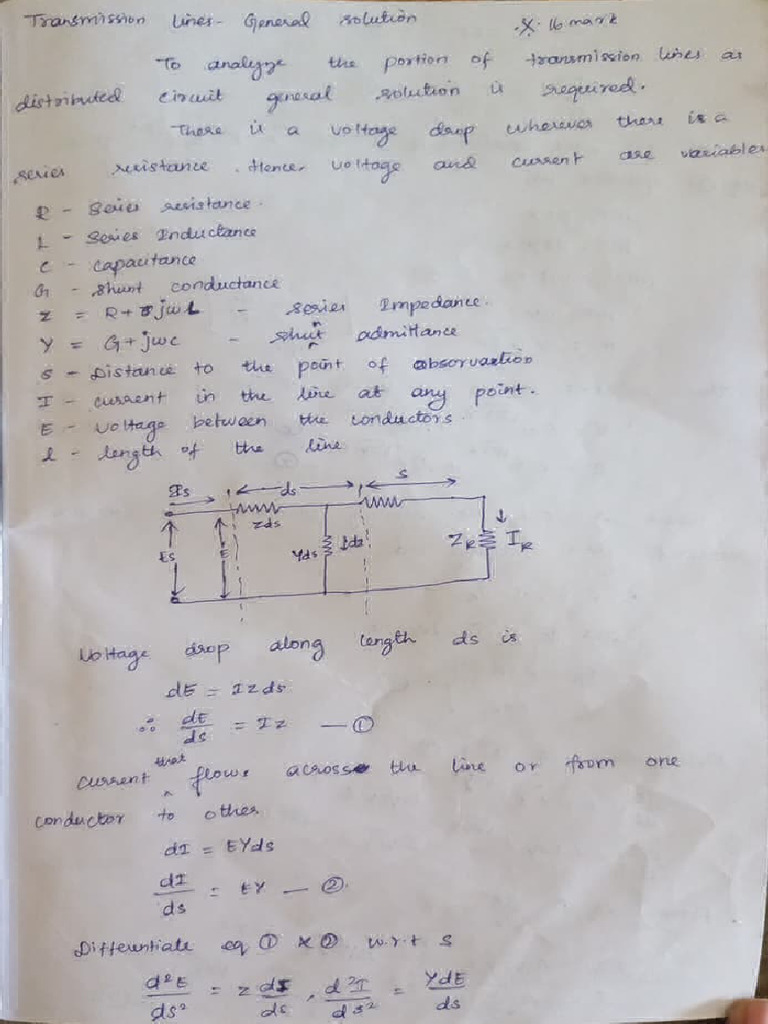 Transmission Lines- General solution .X. 16 mark
To analyze the portion of transmission lines as
distributed circuit general solution is required.
There is a voltage drop wherever there is a
series resistance. Hence voltage and current are variables
R - Series resistance.
L - Series Inductance
C - capacitance
G - shunt conductance
Z = R+ jωL - series Impedance.
Y = G+jωc - shunt admittance
S - Distance to the point of observation
I - current in the line at any point.
E - Voltage between the conductors.
l - length of the line
Is ds S
Zds
Es E Yds ZR IR
Voltage drop along length ds is
dE = IZds
∴ dE/ds = IZ — ①
current that flows across the line or from one
conductor to other
dI = EYds
dI/ds = EY — ②.
Differentiate eq ① & ② w.r.t s
d²E/ds² = Z dI/ds , d²I/ds² = YdE/ds